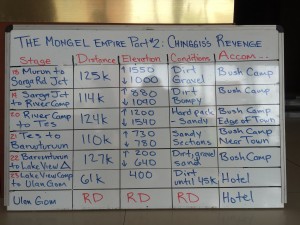 The Mongel Empire Part #2: Chinggis's Revenge
Stage Distance Elevation Conditions Accom...
18 Murun to Saran Rd. Jct 125k ↑1550 ↓1000 Dirt Gravel Bush Camp
19 Saran Jct to River Camp 114k ↑880 ↓1090 Dirt Bumpy Bush Camp
20 River Camp to Tes 124k ↑1200 ↓1540 Hard pack - Sandy Bush Camp Edge of Town
21 Tes to Baruunturuun 110k ↑730 ↓780 Sandy Sections Bush Camp Near Town
22 to Lake View 127k ↑200 ↓640 Dirt, gravel sand Bush Camp
23 Lake View Camp to Ulan Gom 61k 400 Dirt until 45k Hotel
Ulan Gom RD RD RD Hotel